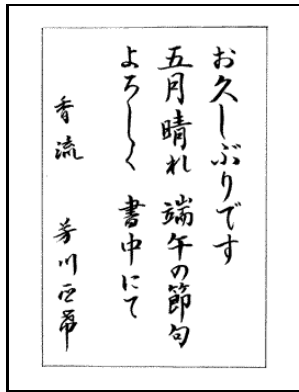 お久しぶりです
五月晴れ 端午の節句
よろしく 書中にて
香流 芳川